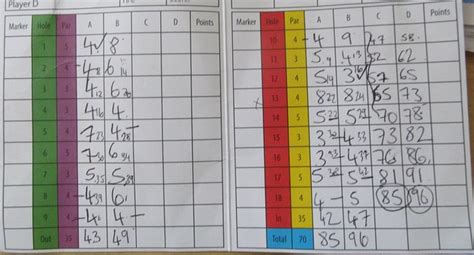 Player D
Marker Hole Par A B C D Points
1 5 4 8
2 4 4 8 6 14
3 3 4 12 6 20
4 3 4 16 4
5 4 7 23 4 28
6 5 7 30 6 34
7 3 5 35 5 39
8 4 4 39 6
9 4 4 4
Out 35 43 49
Marker Hole Par A B C D Points
10 4 4 9 47 58
11 3 5 9 4 13 52 62
12 4 5 14 3 16 57 65
13 4 8 22 8 24 65 73
14 4 5 5 70 78
15 3 3 4 33 73 82
16 3 3 4 37 76 86
17 5 5 5 42 81 91
18 4 4 5 85 96
In 35 42 47
Total 70 85 96